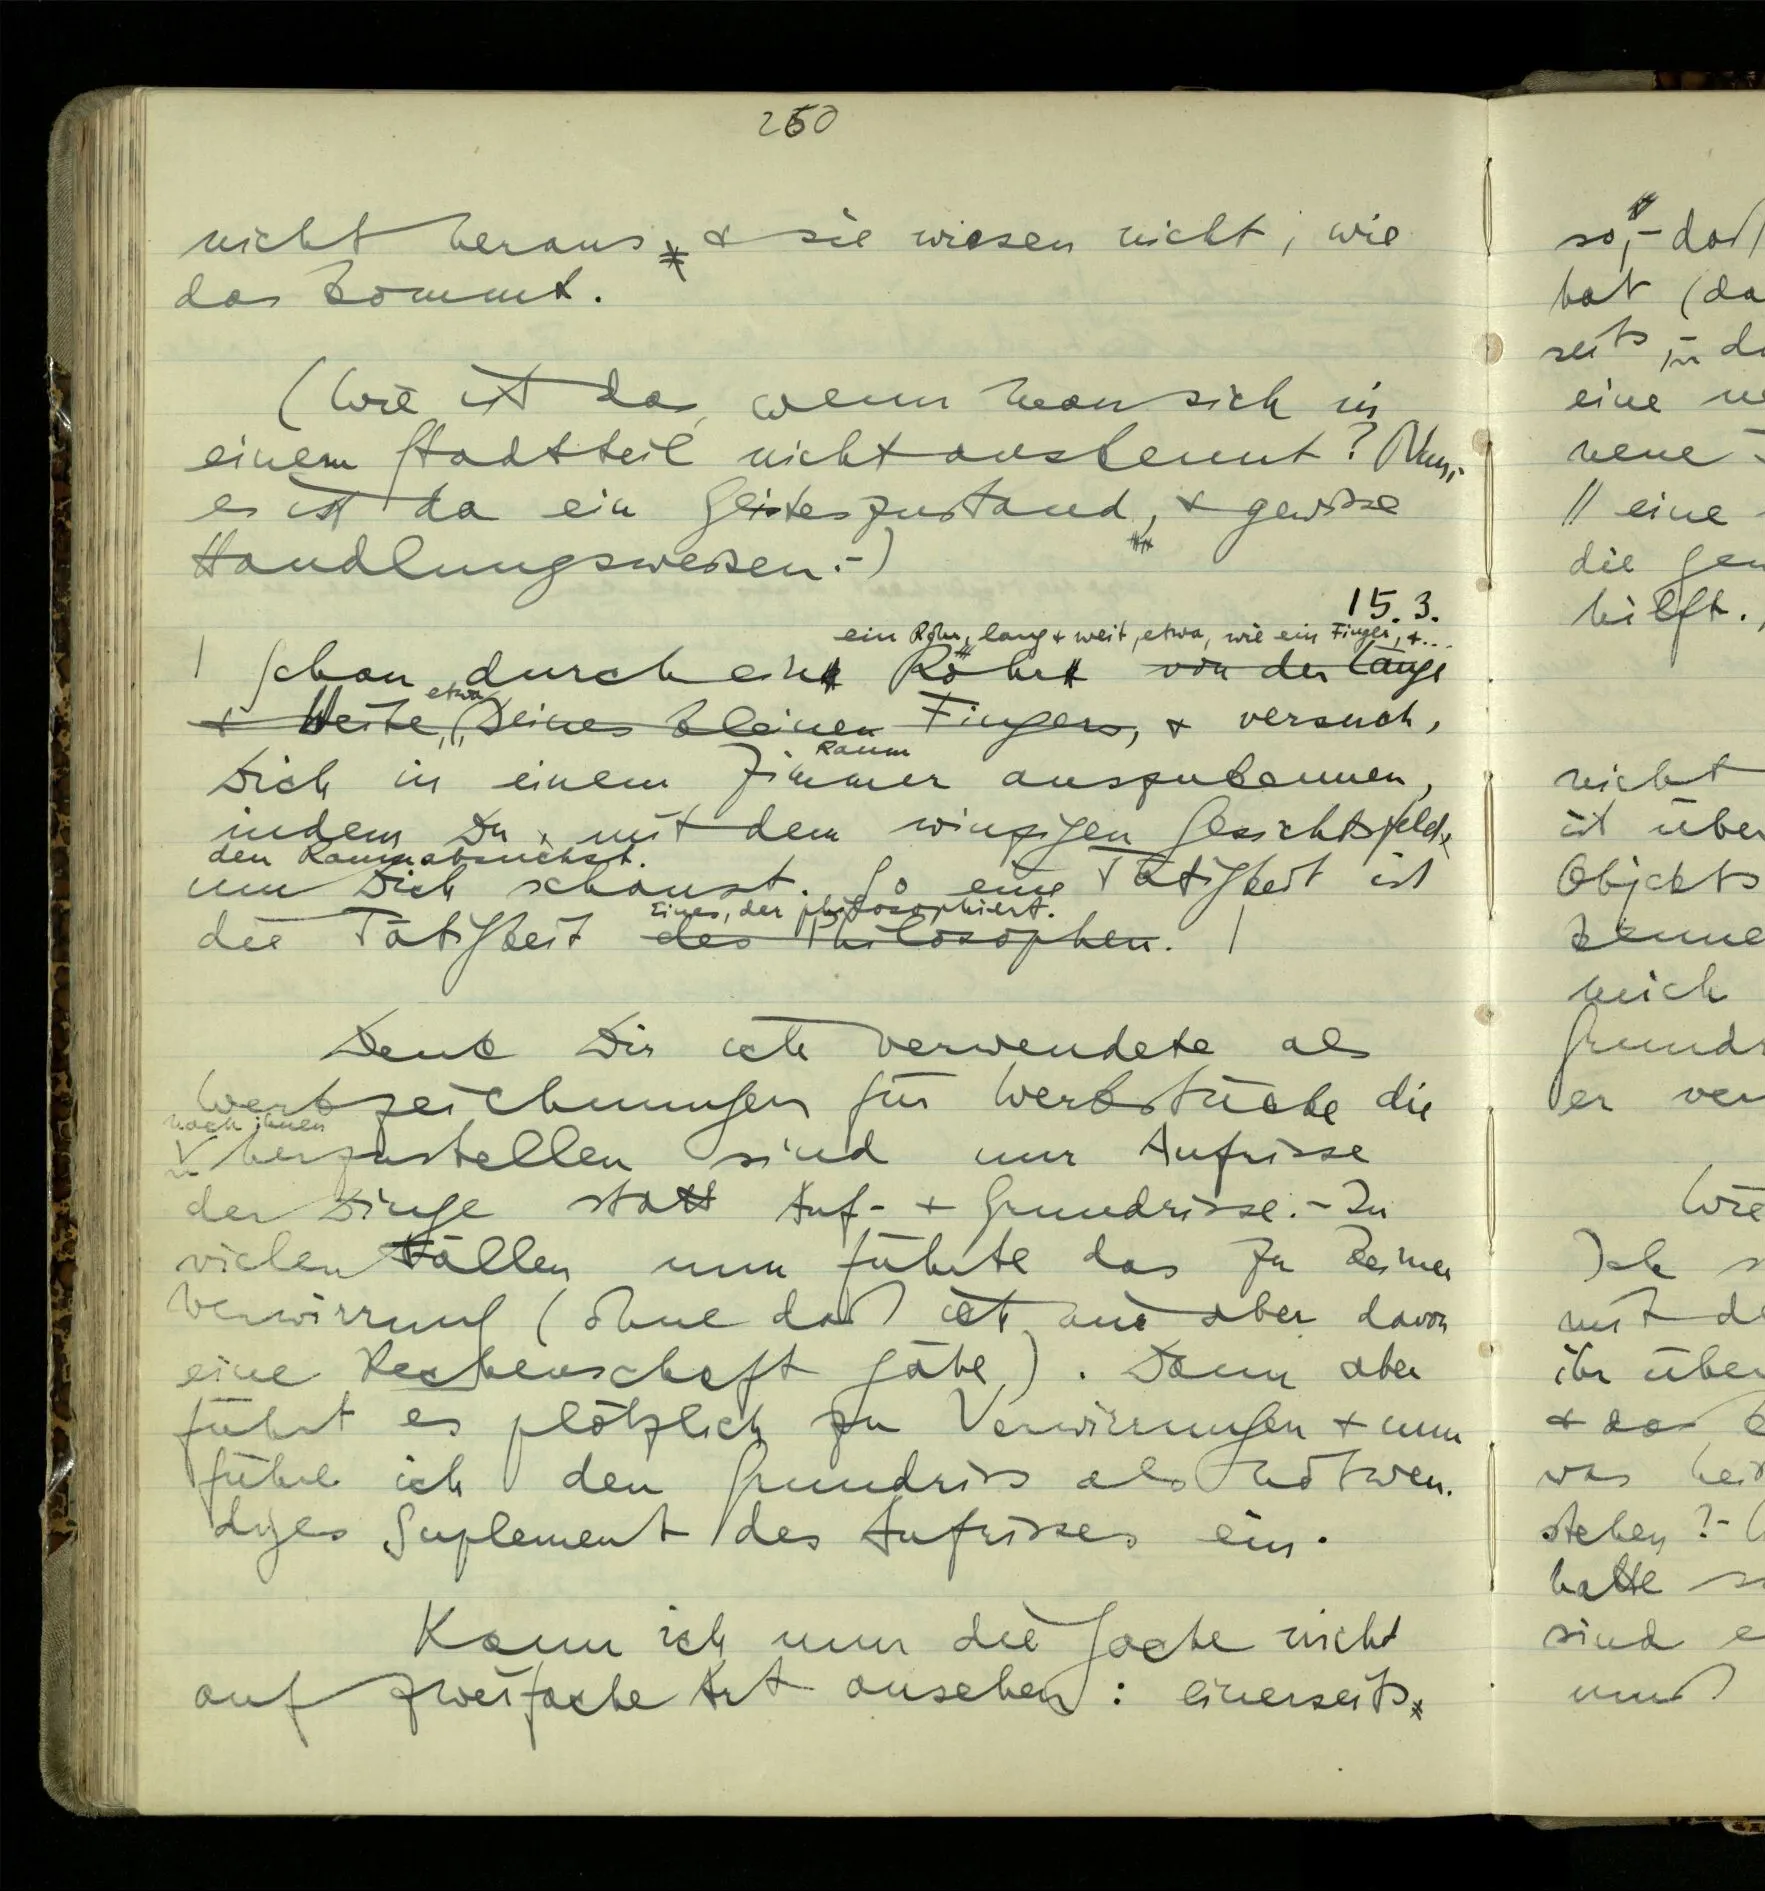 250
nicht heraus & sie wissen nicht, wie
das kommt.
(Wie ist das, wenn man sich in
einem Stadtteil nicht auskennt? Nun,
es ist da ein Geisteszustand, & gewisse
Handlungsweisen.–)
15.3.
ein Rohr, lang & weit, etwa, wie ein Finger, & ...
| Schau durch ein Rohr von der Länge
& Weite, etwa Deines kleinen Fingers, & versuch,
Raum
Dich in einem Zimmer auszukennen,
indem Du, mit dem winzigen Gesichtsfeld,
den Raum absuchst.
um Dich schaust. So eine Tätigkeit ist
Eines, der philosophiert.
die Tätigkeit des Philosophen. |
Denk Dir ich verwendete als
Werkzeichnungen für Werkstücke die
nach ihnen
herzustellen sind nur Aufrisse
der Dinge statt Auf- & Grundrisse. – In
vielen Fällen nun führte das zu keiner
Verwirrung (ohne daß ich mir aber davon
eine Rechenschaft gäbe). Dann aber
führt es plötzlich zu Verwirrungen & nun
führe ich den Grundriss als notwen-
diges Suplement des Aufrisses ein.
Kann ich nun die Sache nicht
auf zweifache Art ansehen: einerseits
so, – daß
hat (da
seits,
eine
neue
// eine
die
hilft.
nicht
ist über
Objekts
kenne
mich
Grundr
er ver
Wie
Ich
mit de
ihr über
& das
was
stehen? –
hatte
sind e
muß